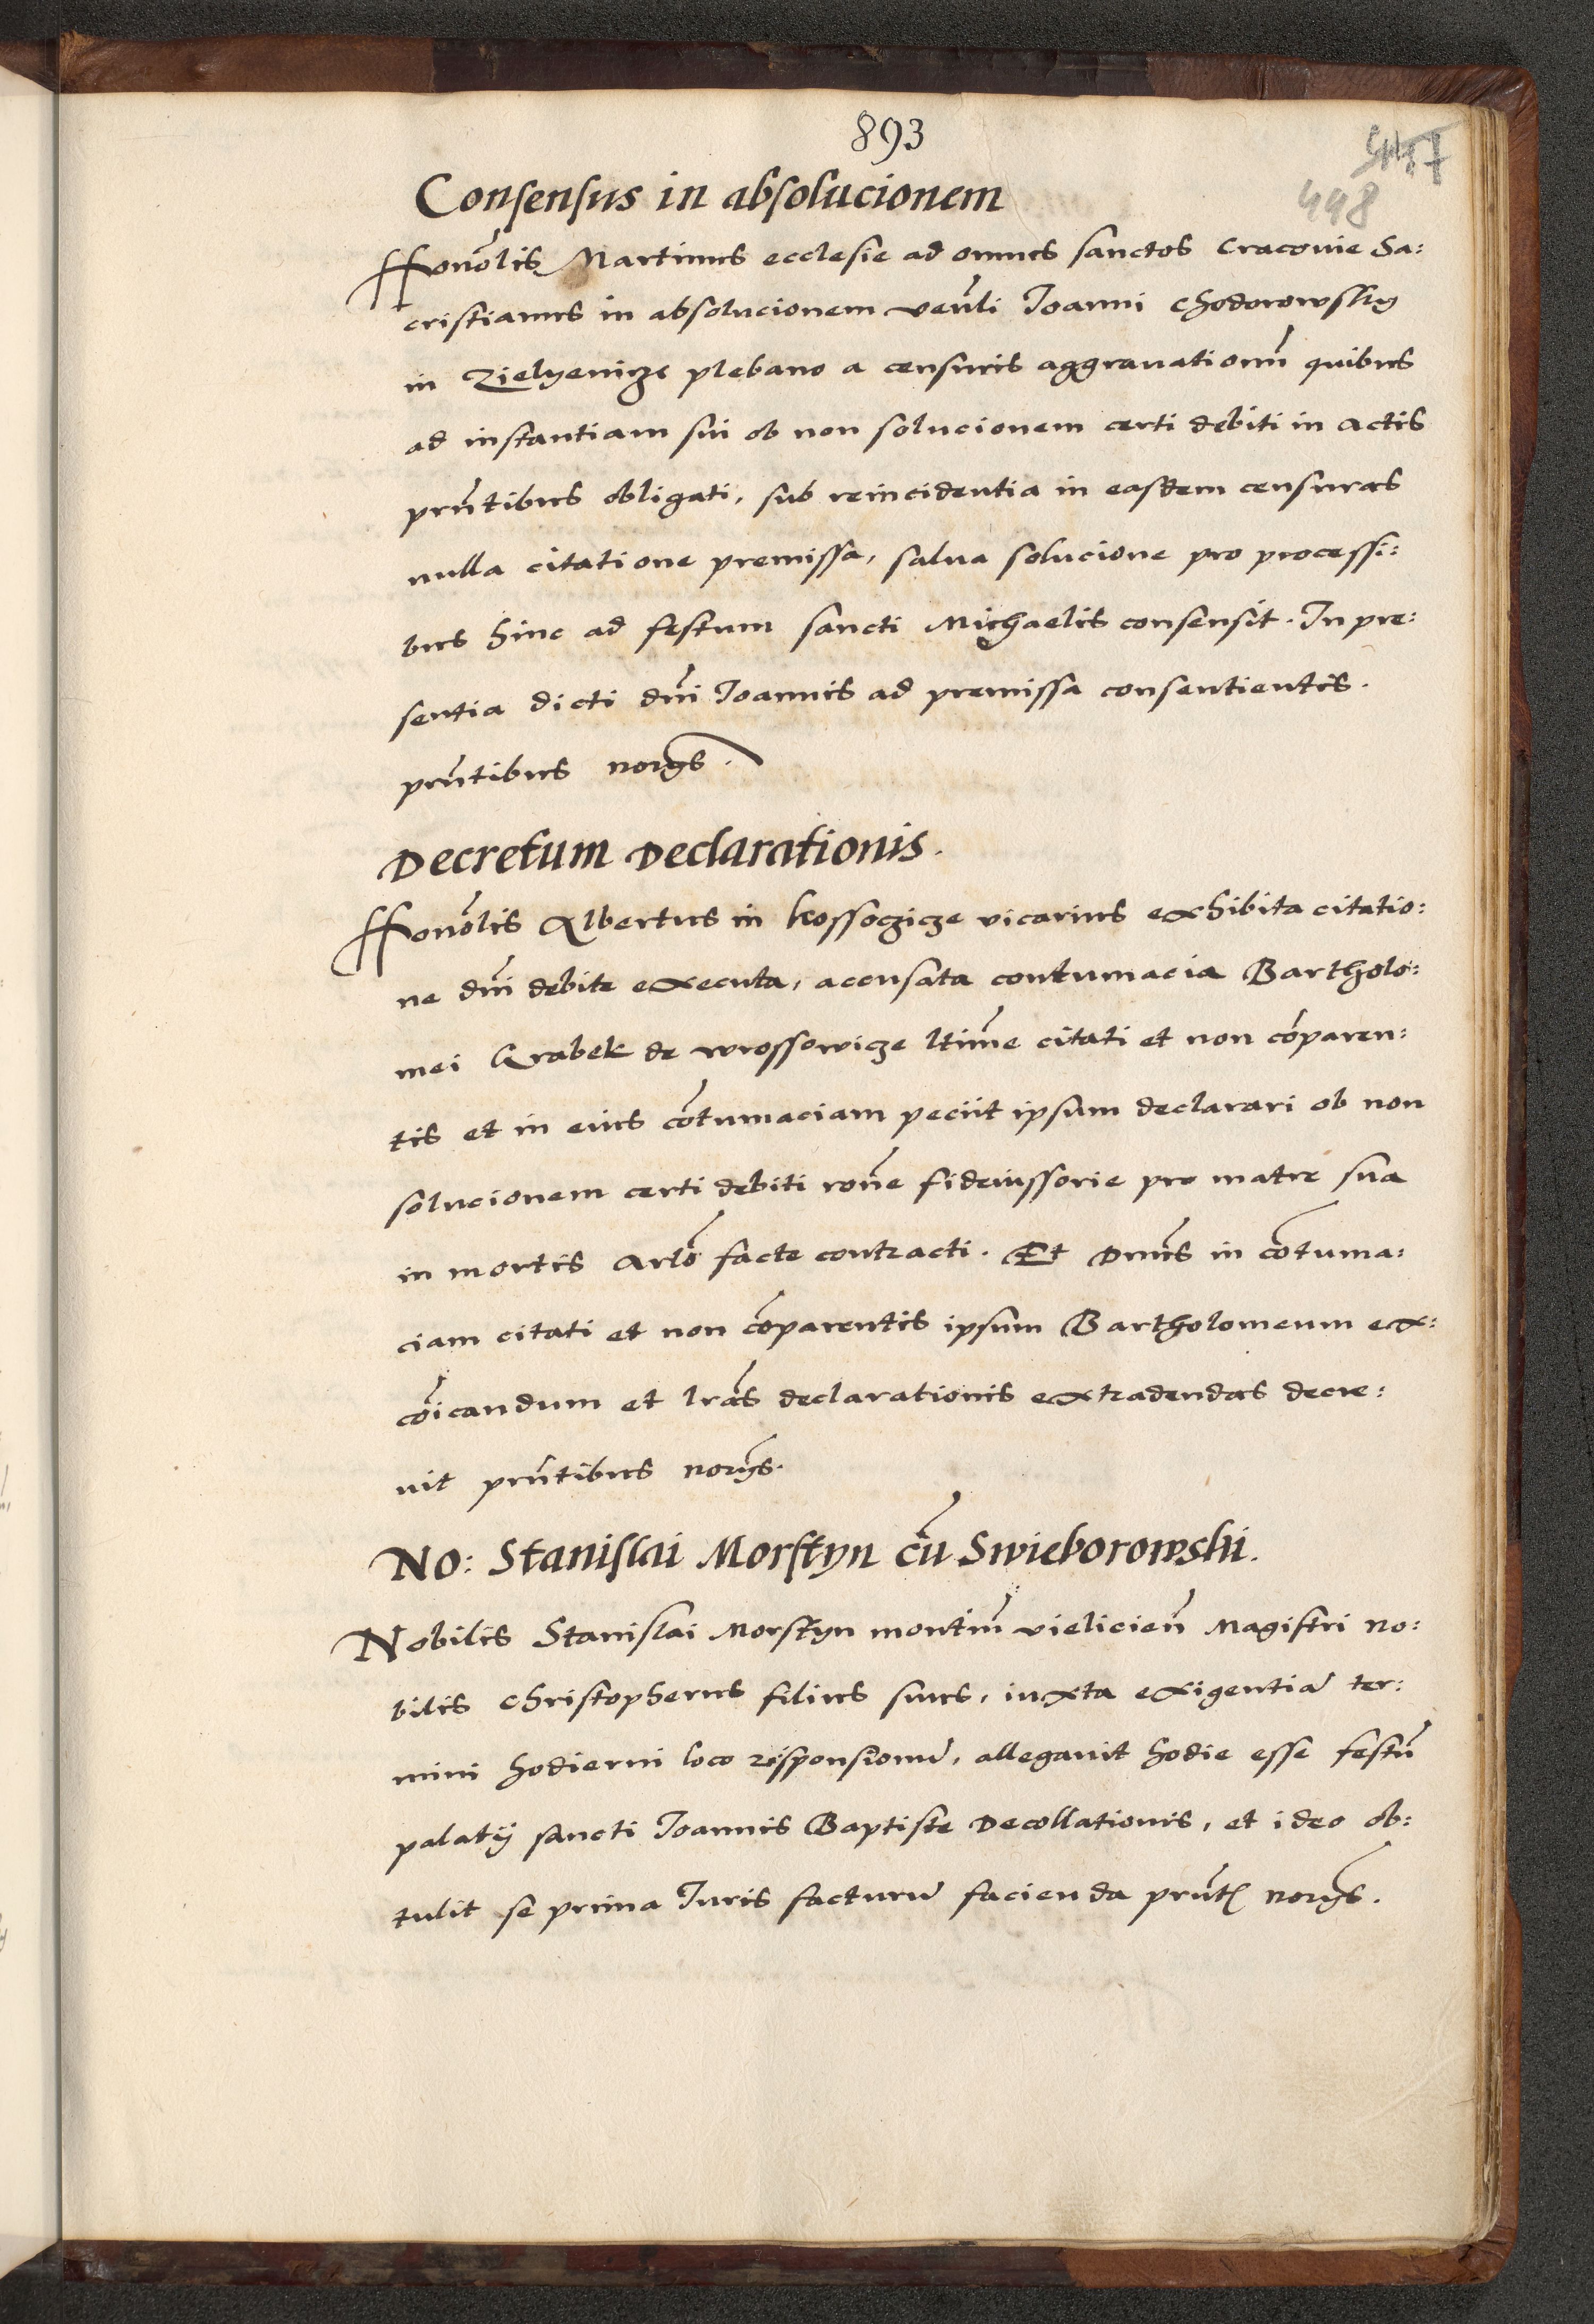 893
448
Consensus in absolucionem
Honol̃is Martinus ecclesie ad omnes sanctos Cracovie Sa:
cristianus in absolucionem ven̄li Joanni Chodorowsky
in Zielyenicze plebano a censuris aggrauationū quibus
ad instantiam sui ob non solucionem certi debiti in actis
pñtibus obligati, sub reincidentia in easdem censuras
nulla citatione premissa, salua solucione pro processi:
bus hinc ad festum sancti Michaelis consensit. In pre:
sentia dicti dñi Joannis ad premissa consentientis.
prñtibus norys.
Decretum Declarationis.
Honol̃is Albertus in Kossoczicze vicarius exhibita citatio:
ne dñi debite executa, accusata contumacia Bartholo:
mei Grabek de wrossowicze ltime citati et non cōparen:
tis et in eius cōtumaciam peciit ipsum declarari ob non
solucionem certi debiti rōne fideiussorie pro matre sua
in mortis arlō facte contracti. Et Dnus in cōtuma:
ciam citati et non cōparentis ipsum Bartholomeum ex:
cōicandum et lr̃as declarationis extradendas decre:
uit prñtibus norys.
No: Stanislai Morstyn cū Swieborowski.
Nobilis Stanislai Morstyn montiū vielicien̄ Magistri no:
bilis Christopherus filius suus, iuxta exigentiā ter:
mini hodierni loco responsionū, allegauit hodie esse festū
palatij sancti Joannis Baptiste Decollationis, et ideo ob:
tulit se prima Juris facturū facienda prñt norys.